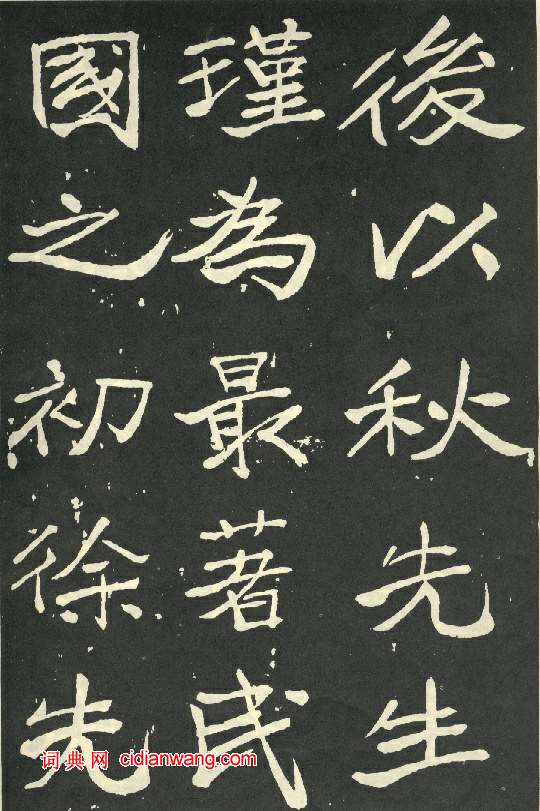 後以秋先生
瑾為最著民
國之初徐先
词典网 cidianwang.com